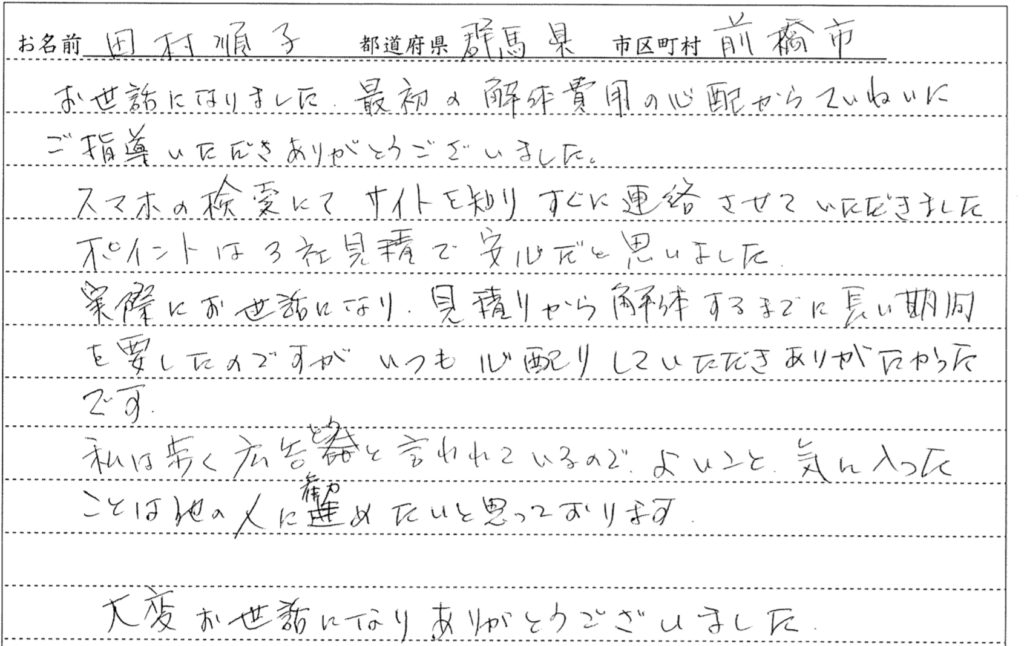 お名前 田村順子 都道府県 群馬県 市区町村 前橋市
お世話になりました。最初の解体費用の心配からていねいに
ご指導いただきありがとうございました。
スマホの検索にてサイトを知りすぐに連絡させていただきました
ポイントは3社見積で安心だと思いました。
実際にお世話になり、見積りから解体するまでに長い期間
を要したのですがいつも心配りしていただきありがたかった
です。
私は歩く広告塔と言われているので、よいこと、気に入った
ことは他の人に勧めたいと思っております。
大変お世話になりありがとうございました。